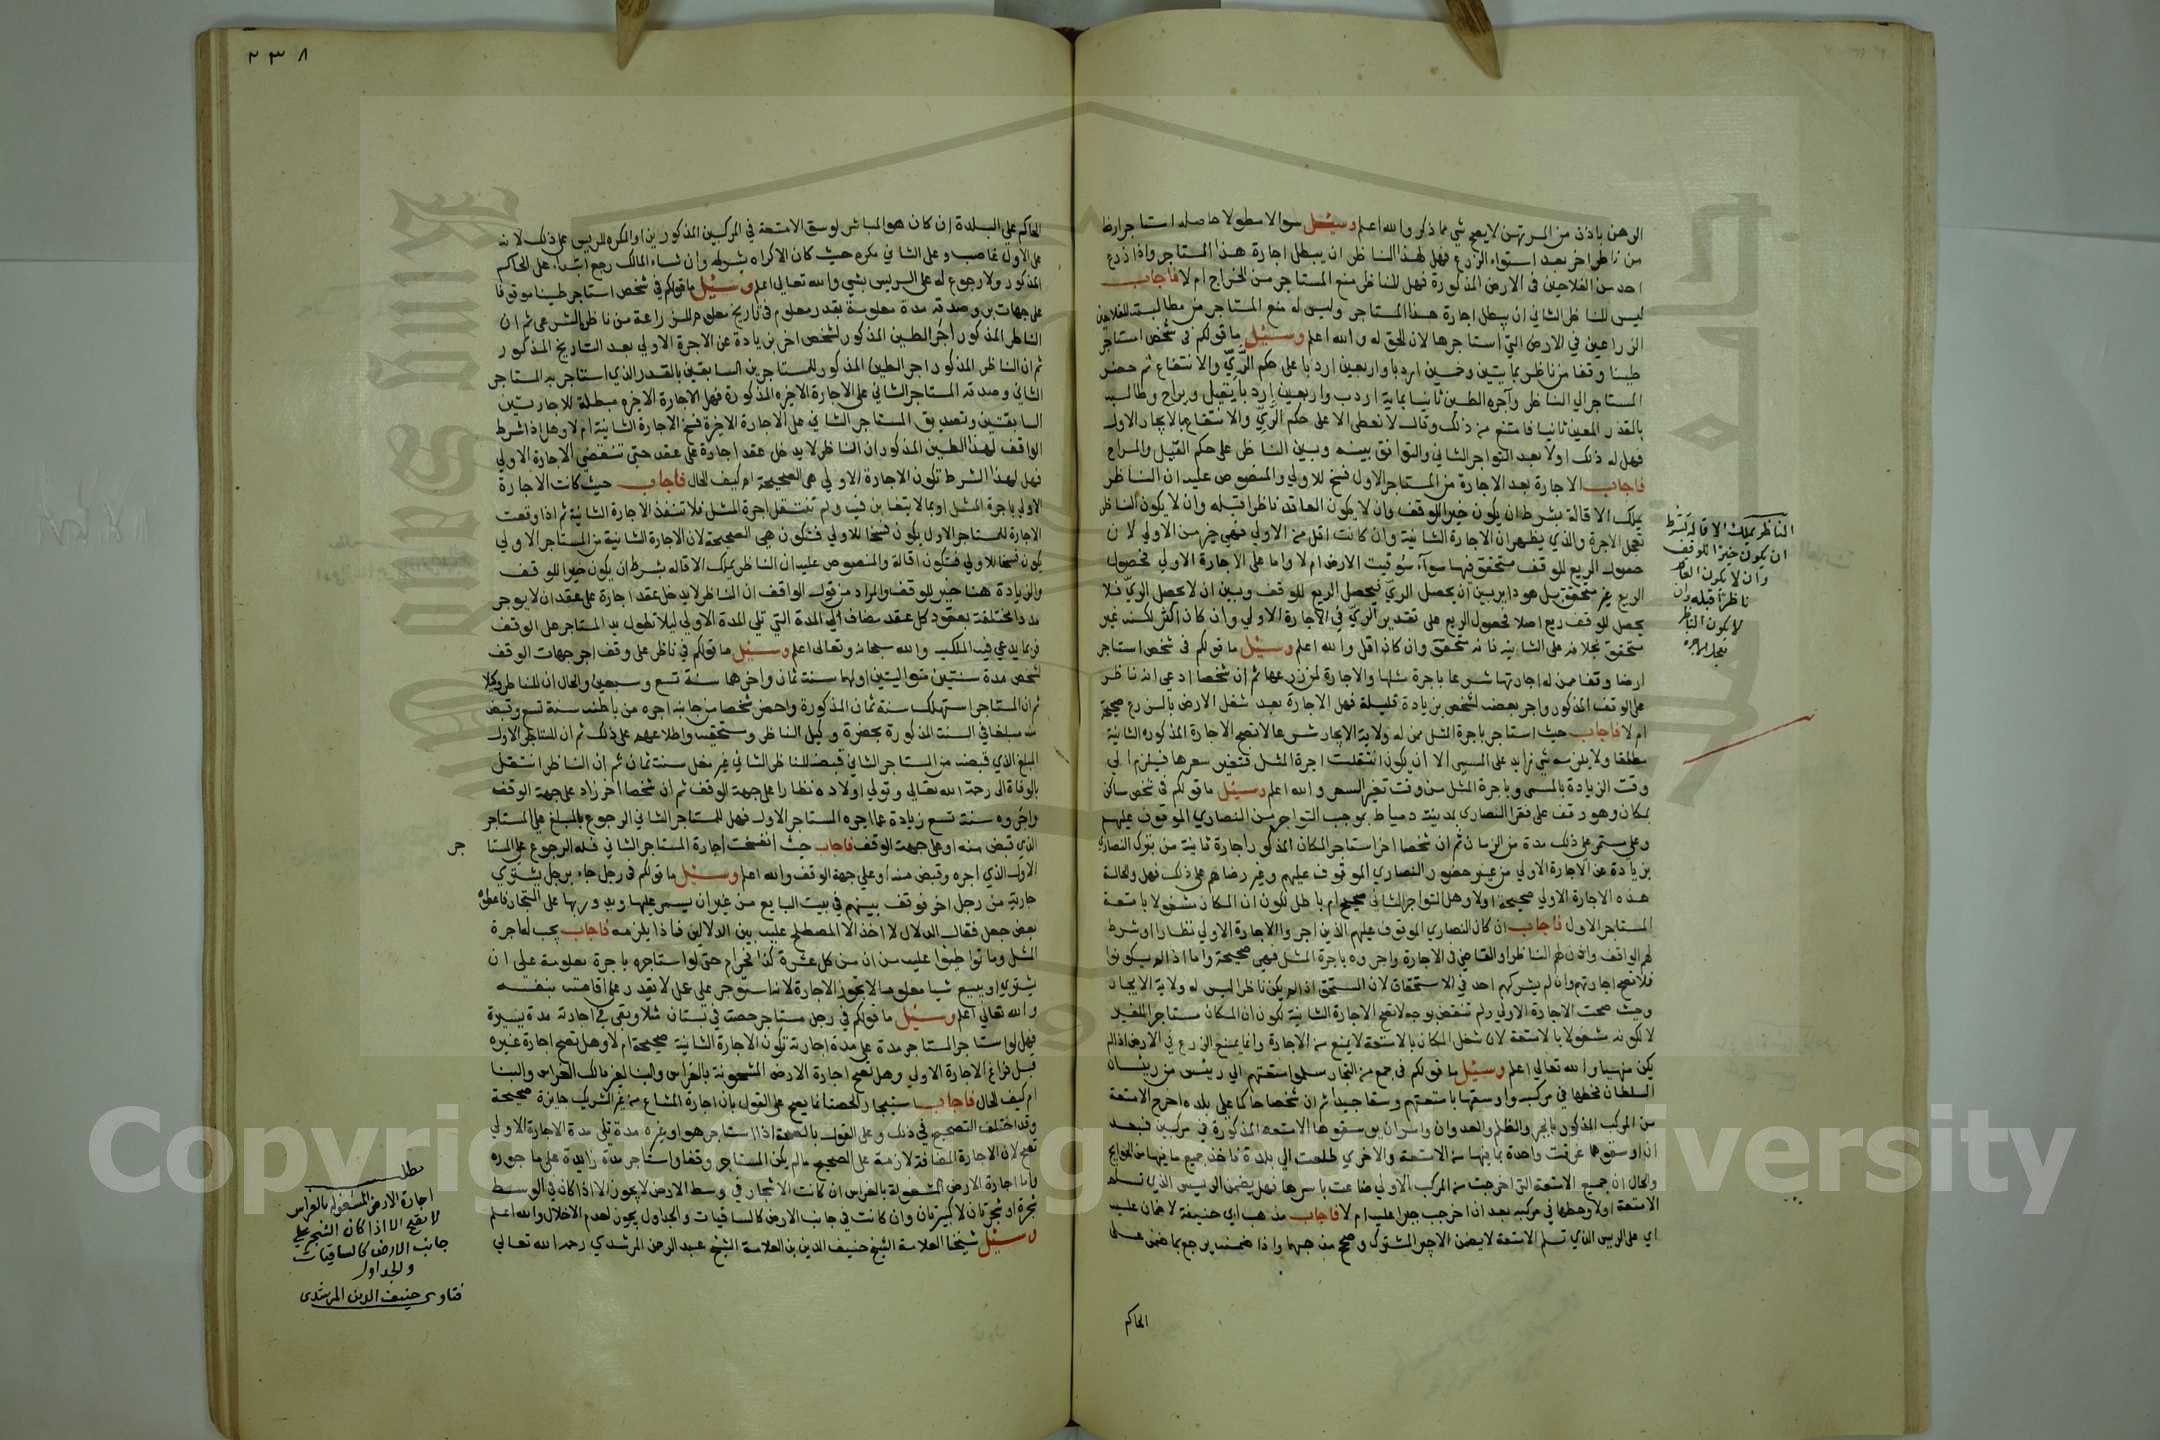 الرهن باذن من المرتهن لايصح شي مما ذكر والله اعلم وسئل سوالا مطولا حاصله استاجر ارضا
من ناظر اخر بعد استواء الزرع فهل لهذا الناظر ان يبطل اجارة هذا المستاجر واذا زرع
احد من الفلاحين في الارض المذكورة فهل للناظر منع المستاجر من الخراج ام لا فاجاب
ليس للناظر الثاني ان يبطل اجارة هذا المستاجر وليس له منع المستاجر من مطالبته للفلاحين
الزراعين في الارض التي استاجرها لان الحق له والله اعلم وسئل ما قولكم في شخص استاجر
طينا وقفا من ناظر بمايتين وخمسين اردبا واربعين اردبا على حكم الري والانتفاع ثم حضر
المستاجر الي الناظر وآجره الطين ثانيا بماية اردب واربعين اردبا بقيل وبراح وطالبه
بالقدر المعين ثانيا فامتنع من ذلك وقال لا نعطى الا على حكم الري والانتفاع بالايجار الاول
فهل له ذلك اولا بعد التواجر الثاني والتوافق بينه وبين الناظر على حكم القيل والبراح
فاجاب الاجارة بعد الاجارة من المستاجر الاول فسخ للاولي والمنصوص عليه ان الناظر
يملك الاقالة بشرط ان يكون خيرا للوقف وان لا يكون العاقد ناظرا قبله وان لا يكون الناظر
تعجل الاجرة والذي يظهر ان الاجارة الثانية وان كانت اقل من الاولي فهي خير من الاولي لان
حصول الريع للوقف متحقق فيها سوآء سقيت الارض ام لا واما على الاجارة الاولي فحصول
الريع غير متحقق بل هو داير بين ان يحصل الري فيحصل الريع للوقف وبين ان لا يحصل الري فلا
يحصل للوقف ريع اصلا فحصول الريع على تقدير الري في الاجارة الاولي وان كان اكثر لكنه غير
متحقق بخلافه على الثانية فانه متحقق وان كان اقل والله اعلم وسئل ما قولكم في شخص استاجر
ارضا وقفا ممن له اجارتها شرعا باجرة مثلها والاجارة لمن زرعها ثم ان شخصا ادعي انه ناظر
على الوقف المذكور واجر بعضه لشخص بزيادة قليلة فهل الاجارة بعد شغل الارض بالزرع صحيحة
ام لا فاجاب حيث استاجر باجرة المثل ممن له ولاية الايجار شرعا لا تصح الاجارة المذكورة الثانية
مطلقا ولا يلزمه شي زايد على المسمى الا ان يكون انتقلت اجرة المثل فتغير سعرها فيلزم الي
وقت الزيادة بالمسمى وباجرة المثل من وقت تغير السعر والله اعلم وسئل ما قولكم في شخص ساكن
بمكان وهو وقف على فقرا النصارى بمدينة دمياط بموجب التواجر من النصاري الموقوف عليهم
وهو مستمر على ذلك مدة من الزمان ثم ان شخصا اخر استاجر المكان المذكور اجارة ثانية من بترك النصارى
بزيادة عن الاجارة الاولي من غير حضور النصاري الموقوف عليهم وغير رضاهم على ذلك فهل والحالة
هذه الاجارة الاولي صحيحة اولا وهل التواجر الثاني صحيح ام باطل لكون ان المكان مشغولا بامتعة
المستاجر الاول فاجاب ان كان النصاري الموقوف عليهم الذين اجروا الاجارة الاولي نظارا او شرط
لهم الواقف واذن لهم الناظر او القاضي في الاجارة واجروه باجرة المثل فهي صحيحة واما اذا لم يكونوا
فلا تصح اجارتهم وان لم يشركهم احد في الاستحقاق لان المستحق اذا لم يكن ناظرا ليس له ولاية الايجار
وحيث صحت الاجارة الاولي ولم تنقض بوجه لا تصح الاجارة الثانية لكون ان المكان مستاجرا لغير
لا لكونه مشغولا بالامتعة لان شغل المكان بالامتعة لا يمنع من الاجارة وانما يمنع الزرع في الارض اذا لم
يكن منتهيا والله تعالي اعلم وسئل ما قولكم في جمع من التجار سلموا امتعتهم الي رييس من ريسان
السلطان فحطها في مركبه واوسقها بامتعتهم وسقا جيدا ثم ان شخصا حاكما على بلده اخرج الامتعة
من المركب المذكور بالجبر والظلم والعدوان وامر ان يوسقوها الامتعة المذكورة في مركبين فبعد
ان اوسقوهما غرقت واحدة بما فيها من الامتعة والاخري طلعت الي بلدة فاخذ جميع ما فيها من
والحال ان جميع الامتعة التي اخرجت من المركب الاولي ضاعت باسرها فهل يضمن الرييس الذي تسلم
الامتعة اولا وحطها في مركبه بعد ان اخرجت جبرا عليه ام لا فاجاب مذهب ابي حنيفة لا ضمان عليه
اي على الريس الذي تسلم الامتعة لا يضمن الاجير المشترك وصحح مذهبهما واذا ضمنه يرجع بما ضمن على
الحاكم
الناظر يملك الاقالة بشرط
ان يكون خيرا للوقف
وان لا يكون العاقد
ناظرا قبله وان
لا يكون الناظر
تعجل الاجرة
٢٣٨
الحاكم علي البلدة ان كان هو المباشر لوسق الامتعة في المركبين المذكورين او المكره للريس على ذلك لانه
على الاول غاصب وعلى الثاني مكره حيث كان الاكراه بشرطه وان شاء المالك رجع ابتداء على الحاكم
المذكور ولا رجوع له على الريس بشي والله تعالى اعلم وسئل ما قولكم في شخص استاجر طينا موقوفا
على جهات بر وصدقه مدة معلومة بقدر معلوم في تاريخ معلوم للزراعة من ناظره الشرعي ثم ان
الناظر المذكور اجر الطين المذكور لشخص اخر بزيادة عن الاجرة الاولي بعد التاريخ المذكور
ثم ان الناظر المذكور اجر الطين المذكور للمستاجرين السابقين بالقدر الذي استاجر به المستاجر
الثاني وصدقه المستاجر الثاني على الاجارة الاخيرة المذكورة فهل الاجارة الاخيره مبطلة للاجارتين
السابقتين وتصديق المستاجر الثاني على الاجارة الاخيرة فسخ الاجارة الثانية ام لا وهل اذا شرط
الواقف لهذا الطين المذكور ان الناظر لا يدخل عقد اجارة على عقد حتى تنقضي الاجارة الاولي
فهل لهذا الشرط تكون الاجارة الاولي هي الصحيحة ام كيف الحال فاجاب حيث كانت الاجارة
الاولي باجرة المثل او بما لا يتغابن فيه ولم تنتقل اجرة المثل فلا تنفذ الاجارة الثانية ثم اذا وقعت
الاجارة للمستاجر الاول يكون فسخا للاولي فتكون هي الصحيحة لان الاجارة الثانية من المستاجر الاولي
يكون فسخا للاولي فتكون اقالة والمنصوص عليه ان الناظر يملك الاقاله بشرط ان يكون خيرا للوقف
والزيادة هنا خير للوقف والمراد من قول الواقف ان الناظر لا يدخل عقد اجارة على عقد ان لا يوجر
مددا مختلفة بعقود كل عقد مضاف الي المدة التي تلي المدة الاولي ليلا تطول يد المستاجر على الوقف
فربما يدعي فيه الملكيه والله سبحانه وتعالى اعلم وسئل ما قولكم في ناظر على وقف اجر جهات الوقف
لشخص مدة سنتين متواليتين اولهما سنة ثمان واخرهما سنة تسع وسبعين والحال ان للناظر وكيلا
ثم ان المستاجر استهلك سنة ثمان المذكورة واحضر شخصا من جانبه اجره من باطنه سنة تسع وقبض
منه مبلغا في السنة المذكورة بحضرة وكيل الناظر ومستحقيه واطلاعهم على ذلك ثم ان المستاجر الاول
المبلغ الذي قبضه من المستاجر الثاني قبضه للناظر الثاني عن مغل سنة ثمان ثم ان الناظر انتقل
بالوفاة الى رحمة الله تعالي وتولي اولاده نظارا على جهة الوقف ثم ان شخصا اخر زاد على جهة الوقف
واجروه سنة تسع زيادة عما اجره المستاجر الاول فهل للمستاجر الثاني الرجوع بالمبلغ على المستاجر
الذي قبض منه او على جهة الوقف فاجاب حيث انفسخت اجارة المستاجر الثاني فله الرجوع على المستا
جر
الاول الذي اجره وقبض منه او علي جهة الوقف والله اعلم وسئل ما قولكم في رجل جاء برجل يشتري
جارية من رجل اخر فوقف بينهم في بيت البايع من غير ان يسمر عليها ويدور بها على التجار فاعطوه
بعض جعل فقال الدلال لا اخذ الا المصطلح عليه بين الدلالين فماذا يلزمه فاجاب يجب لها اجرة
المثل وما تواطئوا عليه من ان من كل عشرة كذا فحرام حتى لو استاجره باجرة معلومة على ان
يشتري او يبيع شيا معلوما لا تجوز الاجارة لانه استوجر على عمل لا يقدر على اقامته بنفسه
والله تعالي اعلم وسئل ما قولكم في رجل مستاجر حصة في بستان مثلا وبقي في اجارته مدة يسيرة
فهل لو استاجر المستاجر مدة على مدة اجارته تكون الاجارة الثانية صحيحة ام لا وهل تصح اجارة غيره
قبل فراغ الاجارة الاولي وهل تصح اجارة الارض المشحونة بالغراس والبنا لغير مالك الغراس والبنا
ام كيف الحال فاجاب استيجار الحصة انما يصح على القول بان اجارة المشاع من غير الشريك جايزة صحيحة
وقد اختلف التصحيح في ذلك وعلى القول بالصحة اذا استاجر هو او غيره مدة تلي مدة الاجارة الاولي
تصح لان الاجارة المضافة لازمة على الصحيح ما لم يكن المستاجر وقفا واستاجر مدة زايدة على ما جوزه
واما اجارة الارض المشغولة بالغراس ان كانت الاشجار في وسط الارض لا يجوز الا اذا كان في الوسط
شجرة او شجرتان لا كبيرتان وان كانت في جانب الارض كالساقيات والجداول يجوز لعدم الاخلال والله اعلم
وسئل شيخنا العلامة الشيخ حنيف الدين بن العلامة الشيخ عبد الرحمن المرشدي رحمه الله تعالي
مطلب
اجارة الارض المشغولة بالغراس
لا تصح الا اذا كان الشجر علي
جانب الارض كالساقيات
والجداول
فتاوى حنيف الدين المرشدي
Copyright © King Saud University